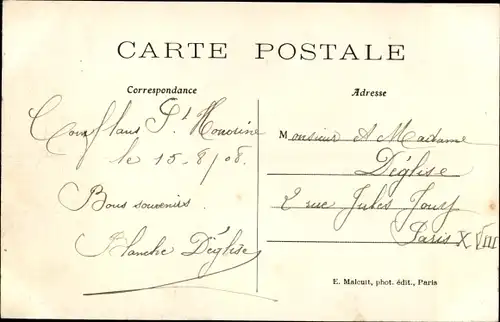 CARTE POSTALE
Correspondance
Conflans St Honorine
le 15-8/08.
Bons souvenirs.
Blanche Déglise
Adresse
Monsieur & Madame
Déglise
2 rue Jules Jouy
Paris XVIII
E. Malcuit, phot. édit., Paris